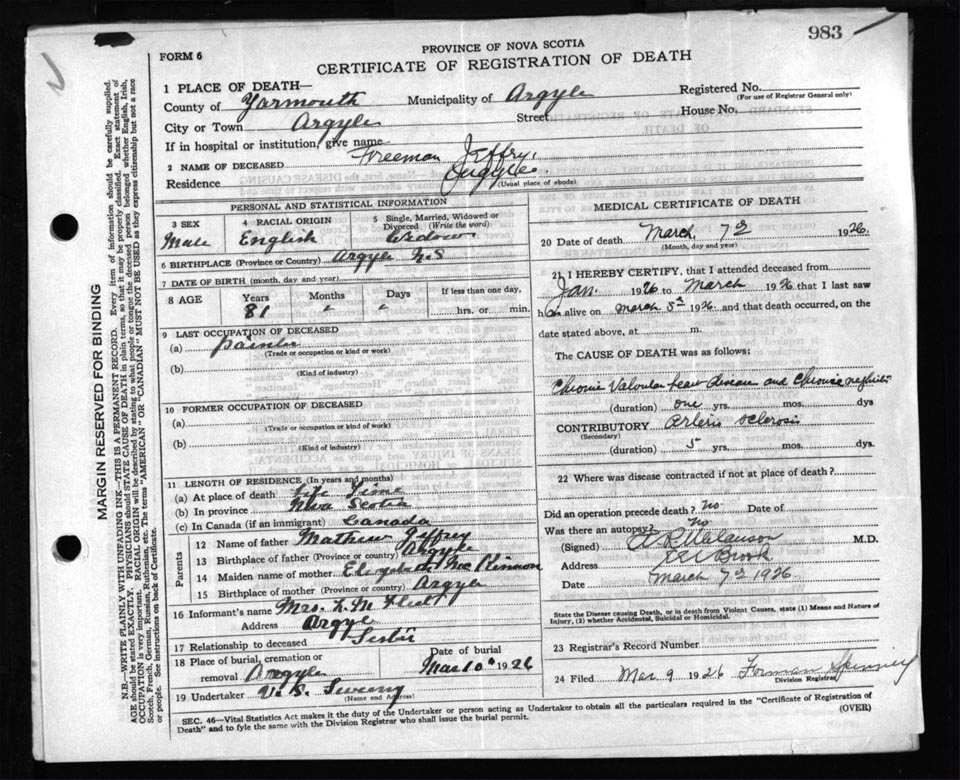 983
FORM 6
PROVINCE OF NOVA SCOTIA
CERTIFICATE OF REGISTRATION OF DEATH
MARGIN RESERVED FOR BINDING
N.B.—WRITE PLAINLY WITH UNFADING INK—THIS IS A PERMANENT RECORD. Every item of information should be carefully supplied.
AGE should be stated EXACTLY. PHYSICIANS should STATE CAUSE OF DEATH in plain terms, so that it may be properly classified. Exact statement of
OCCUPATION is very important. RACIAL ORIGIN will be described by stating to what people or tongue the deceased person belonged whether English, Irish,
Scotch, French, German, Russian, Ruthenian, etc. The terms "AMERICAN" or "CANADIAN" MUST NOT BE USED as they express citizenship but not a race
or people. See instructions on back of Certificate.
1 PLACE OF DEATH—
Registered No.
(For use of Registrar General only)
County of Yarmouth Municipality of Argyle
City or Town Argyle Street House No.
If in hospital or institution, give name
2 NAME OF DECEASED Freeman Jeffry.
Residence Argyle (Usual place of abode)
PERSONAL AND STATISTICAL INFORMATION
3 SEX Male
4 RACIAL ORIGIN English
5 Single, Married, Widowed or Divorced (Write the word)
6 BIRTHPLACE (Province or Country) Argyle N.S
7 DATE OF BIRTH (month, day and year)
8 AGE Years 81 Months " Days " If less than one day, hrs. or min.
9 LAST OCCUPATION OF DECEASED
(a) painter
(Trade or occupation or kind or work)
(b)
(Kind of industry)
10 FORMER OCCUPATION OF DECEASED
(a)
(Trade or occupation or kind of work)
(b)
(Kind of industry)
11 LENGTH OF RESIDENCE (In years and months)
(a) At place of death Life Time
(b) In province Nova Scotia
(c) In Canada (if an immigrant) Canada
Parents
12 Name of father Mathew Jeffrey
13 Birthplace of father (Province or country) Argyle
14 Maiden name of mother Mc Kinnon
15 Birthplace of mother (Province or country) Argyle
16 Informant's name Mrs.
Address Argyle
17 Relationship to deceased Sister
18 Place of burial, cremation or removal Argyle
Date of burial Mar 10th 1926
19 Undertaker V. S. Sweeny
(Name and Address)
MEDICAL CERTIFICATE OF DEATH
20 Date of death March 7 1926.
(Month, day and year)
21 I HEREBY CERTIFY, that I attended deceased from
Jan. 1926 to March 1926 that I last saw
h alive on March 5 1926 and that death occurred, on the
date stated above, at m.
The CAUSE OF DEATH was as follows:
Chronic Valvular heart disease and Chronic nephritis
(duration) one yrs. mos. dys
CONTRIBUTORY Arterio sclerosis
(Secondary)
(duration) 5 yrs. mos. dys.
22 Where was disease contracted if not at place of death?
Did an operation precede death? no Date of
Was there an autopsy? no
(Signed) Melanson M.D.
Address Brook
Date March 7 1926.
State the Disease causing Death, or in death from Violent Causes, state (1) Means and Nature of
Injury, (2) whether Accidental, Suicidal or Homicidal.
23 Registrar's Record Number
24 Filed Mar 9 1926 Forman Spinney
Division Registrar
SEC. 46—Vital Statistics Act makes it the duty of the Undertaker or person acting as Undertaker to obtain all the particulars required in the "Certificate of Registration of
Death" and to fyle the same with the Division Registrar who shall issue the burial permit.
(OVER)